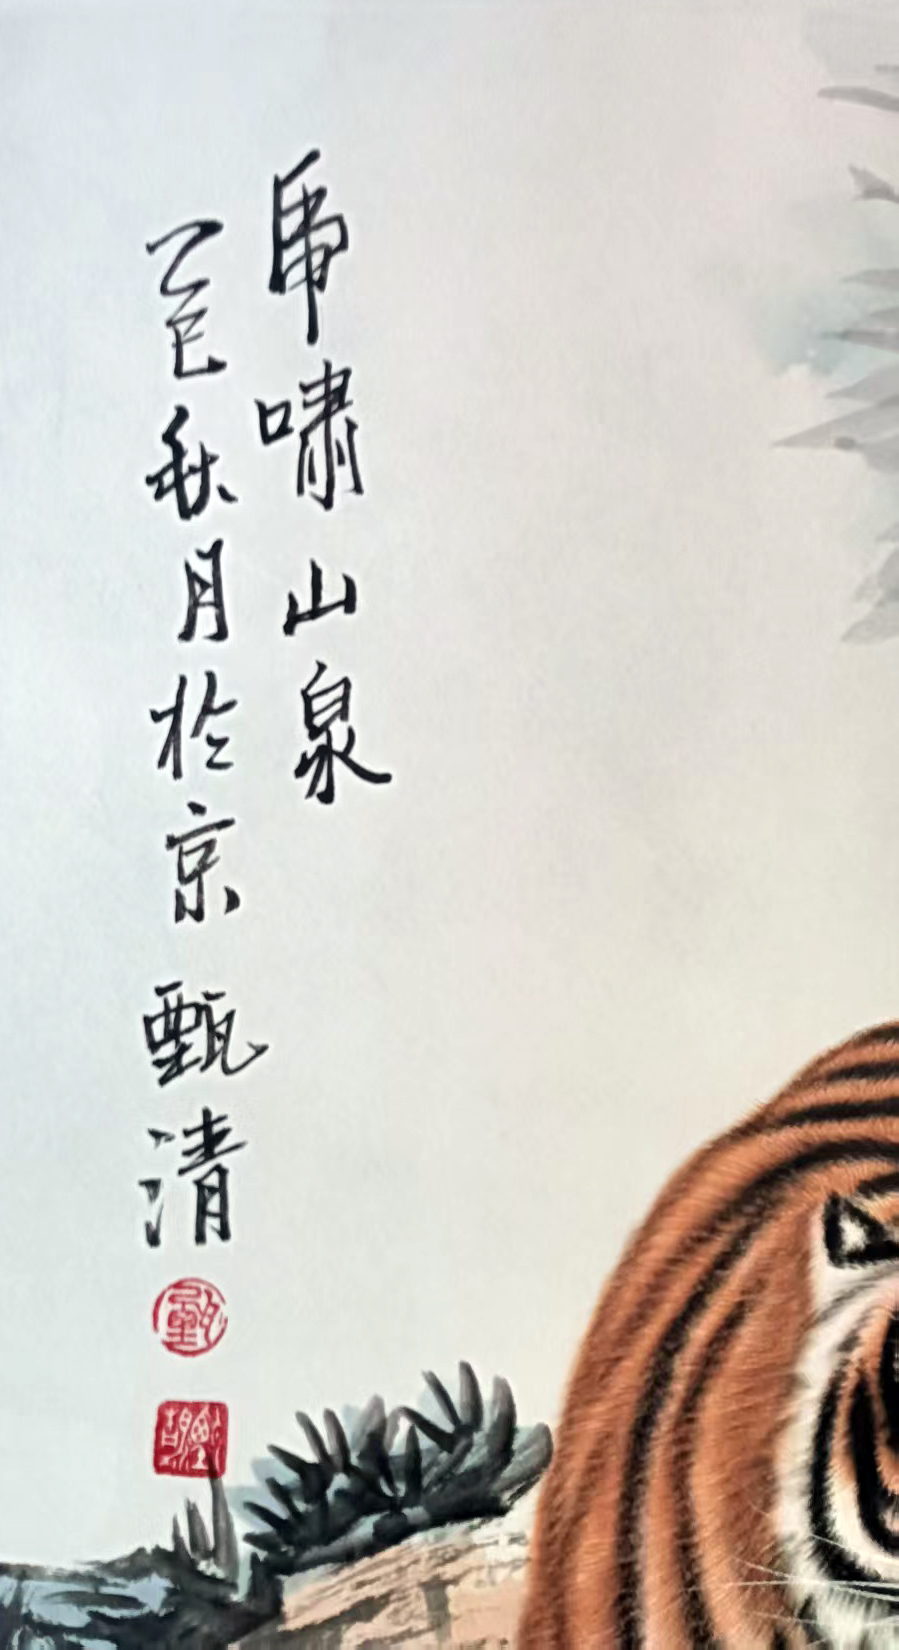 虎啸山泉
乙巳秋月於京 甄清